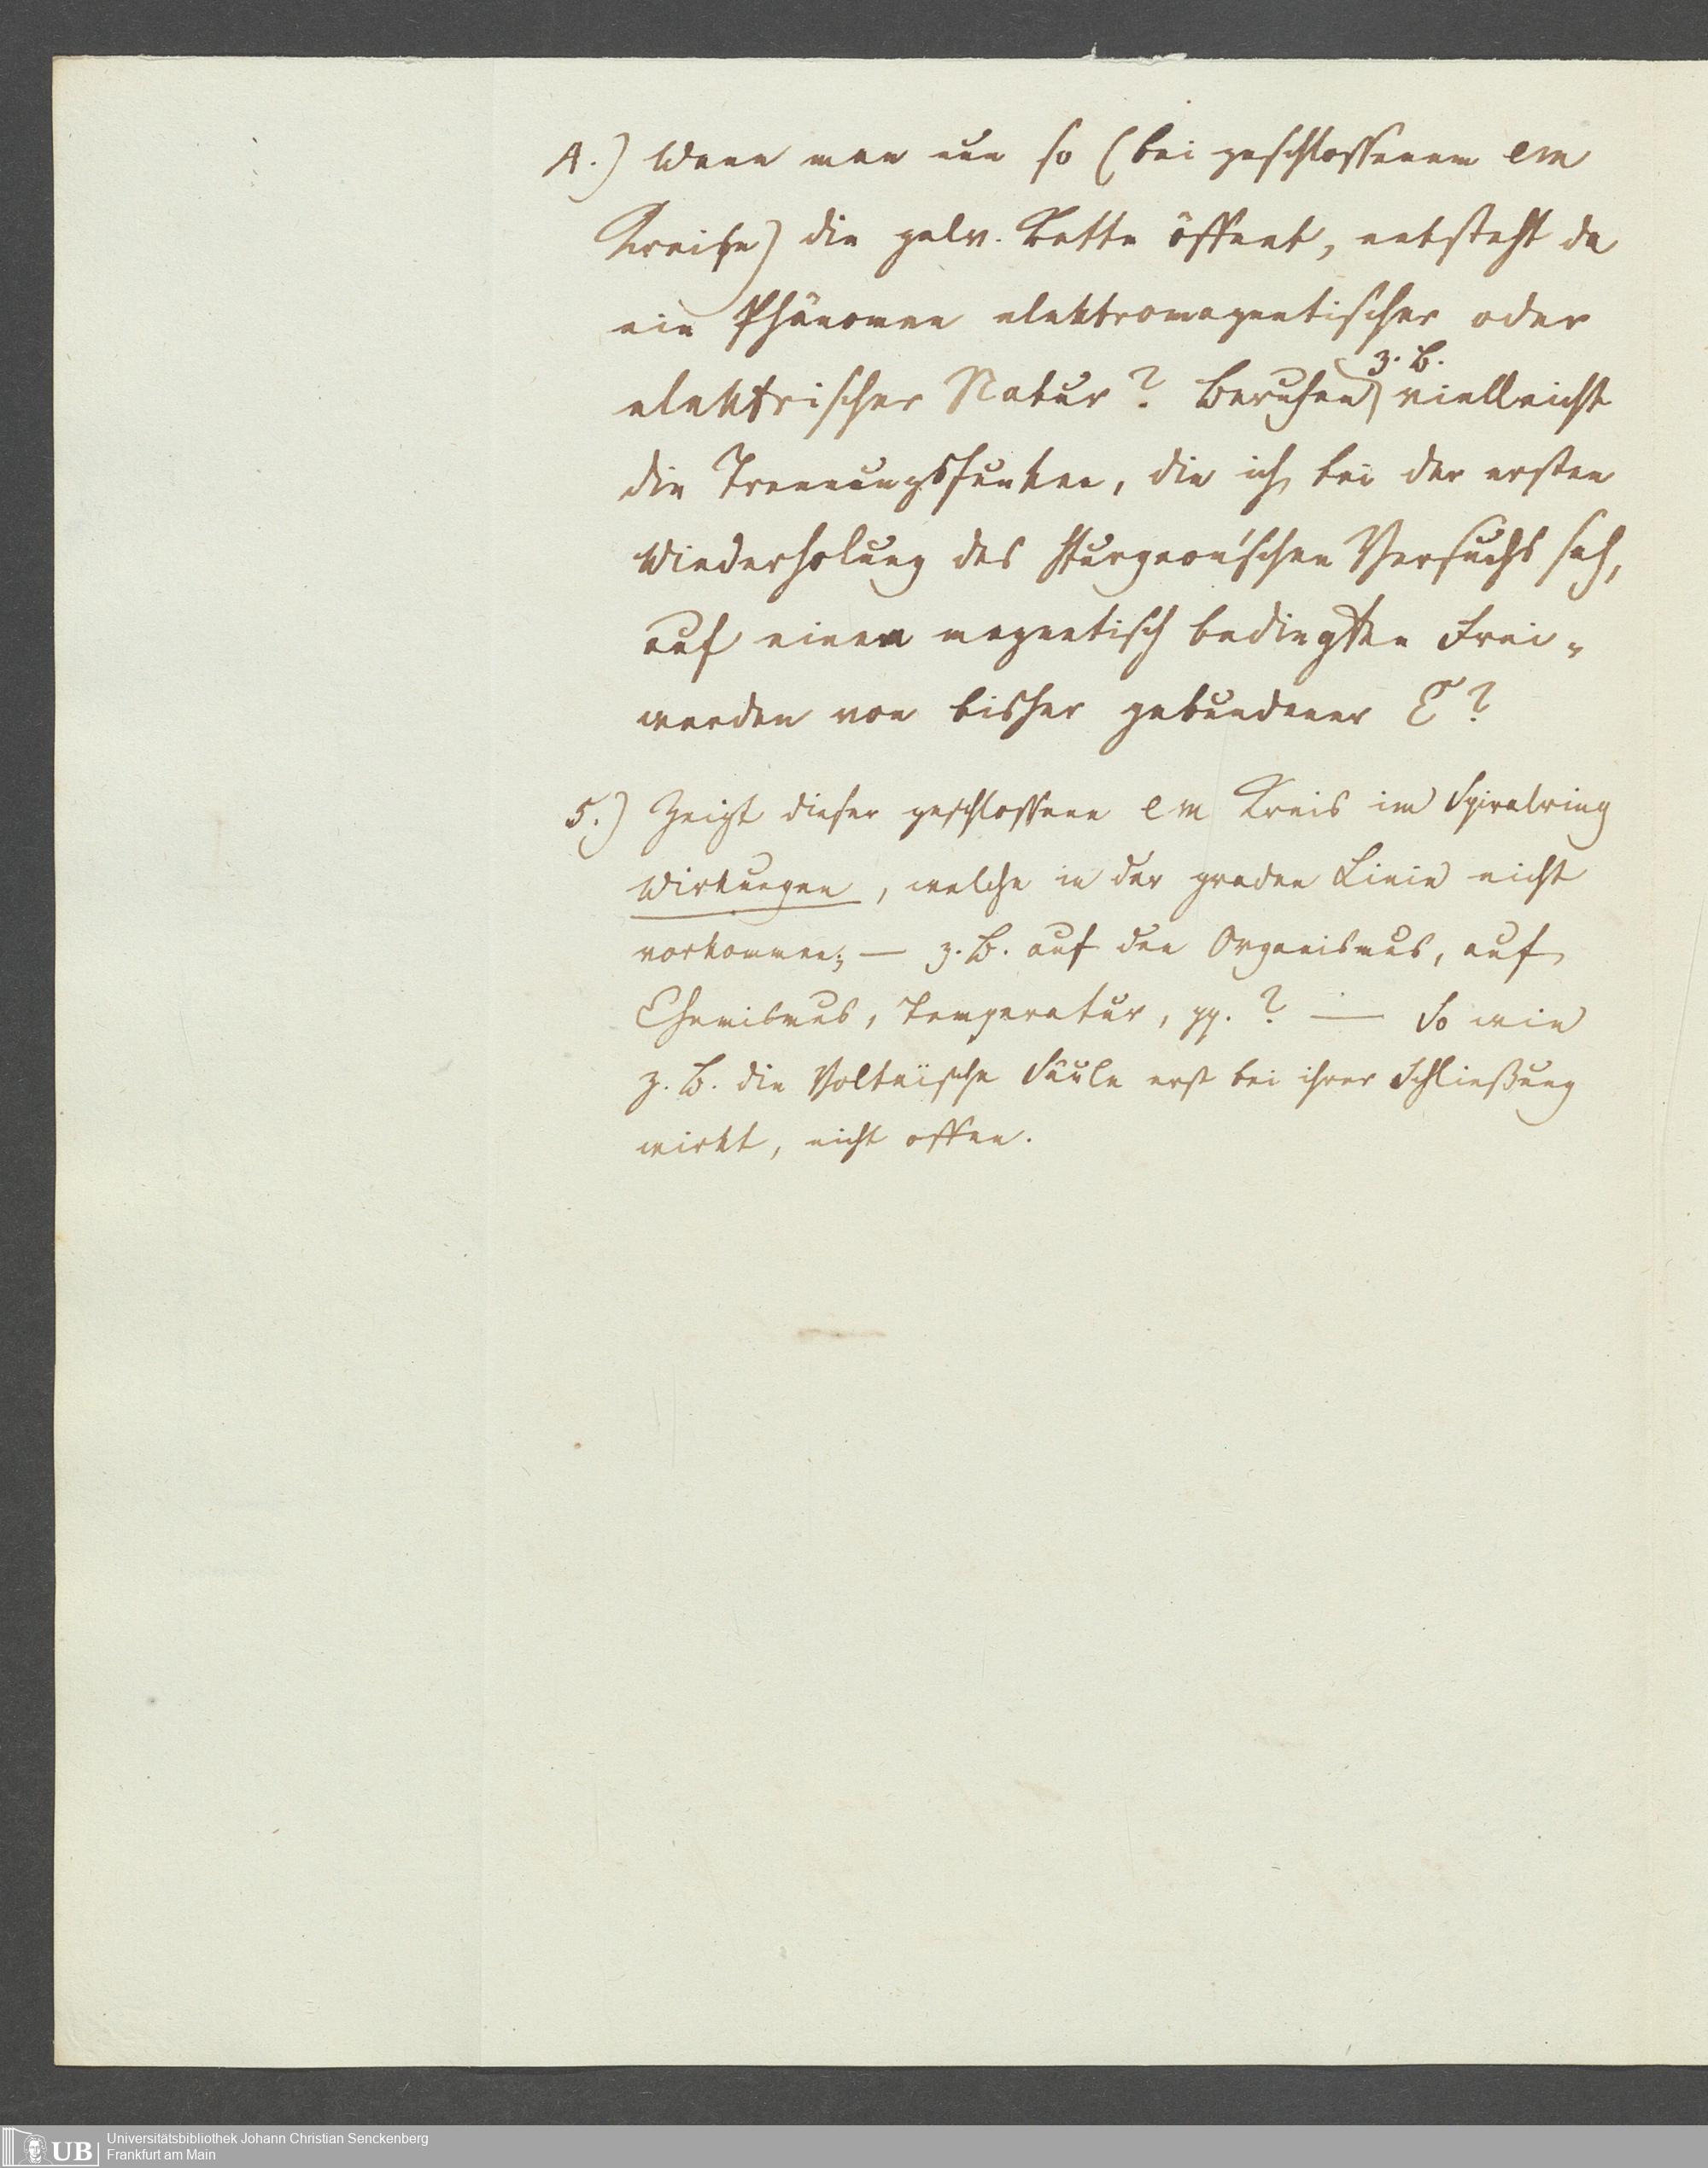 4.) Wenn man nun so (bei geschlossenem em
Kreise) die galv. Kette öffent, entsteht da
ein Phänomen elektromagnetischer oder
z. B.
elektrischer Natur? Beruhen vielleicht
die Trennungsfunken, die ich bei der ersten
Wiederholung des Sturgeon'schen Versuchs sah,
auf einem magnetisch bedingten Frei-
werden von bisher gebundener E?
5.) Zeigt dieser geschlossene em Kreis im Spiralring
Wirkungen, welche in der graden Linie nicht
vorkommen; — z. B. auf den Organismus, auf
Chemismus, Temperatur, pp. ? — So wie
z. B. die Voltaïsche Säule erst bei ihrer Schließung
wirkt, nicht offen.
UB
Universitätsbibliothek Johann Christian Senckenberg
Frankfurt am Main